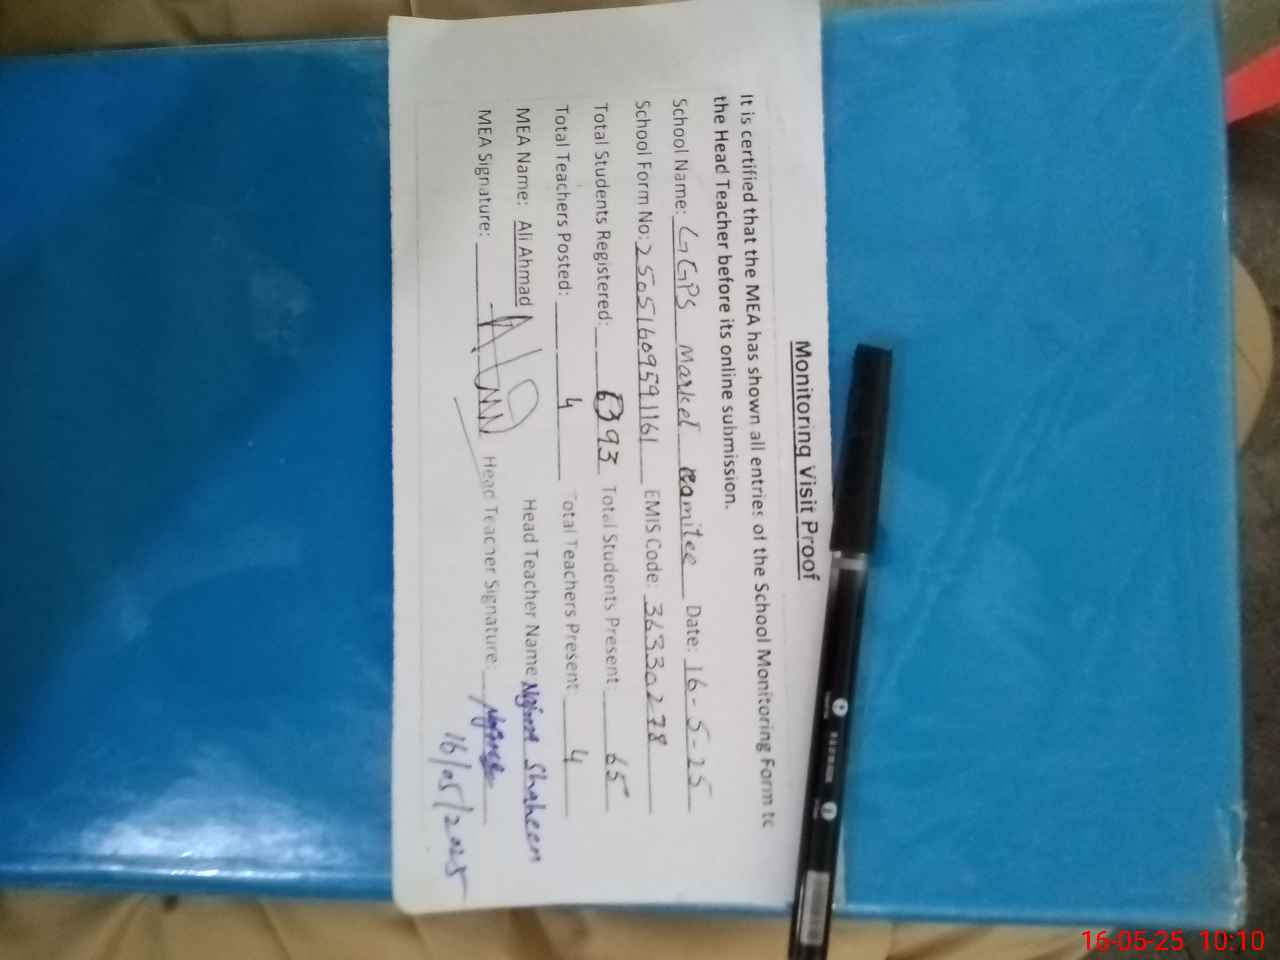 Monitoring Visit Proof
It is certified that the MEA has shown all entries of the School Monitoring Form to
the Head Teacher before its online submission.
School Name: GGPS Market Comitee Date: 16-5-25
School Form No: 25051609591161 EMIS Code: 36330278
Total Students Registered: 93 Total Students Present: 65
Total Teachers Posted: 4 Total Teachers Present: 4
MEA Name: Ali Ahmad Head Teacher Name Najma Shaheen
MEA Signature: Head Teacher Signature:
16/05/2025
16-05-25 10:10